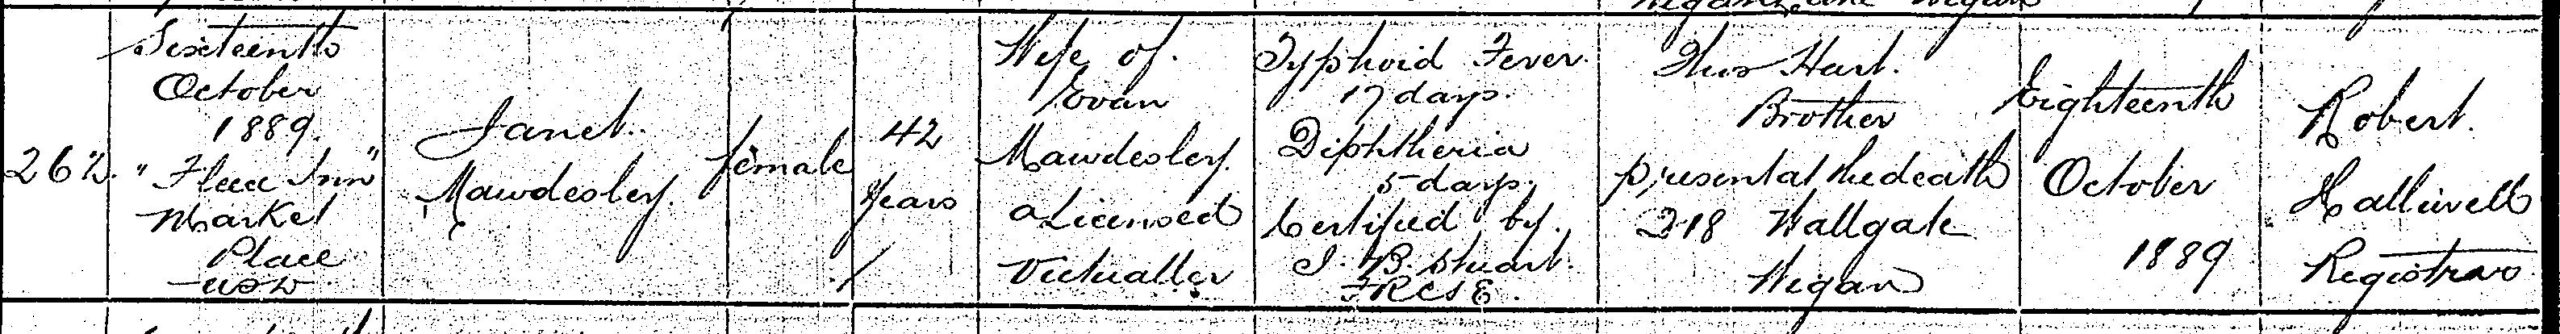 262.
Sixteenth
October
1889.
"Flee Inn"
Market
Place
USD
Janet.
Mawdesley.
Female
42
Years
Wife of.
Evan
Mawdesley.
a Licensed
Victualler
Typhoid Fever.
17 days.
Diphtheria
5 days.
Certified by.
J. B. Stuart.
FRCSE.
Thos Hart.
Brother
present at the death
218 Wallgate
Wigan
Eighteenth
October
1889
Robert.
Halliwell
Registrar